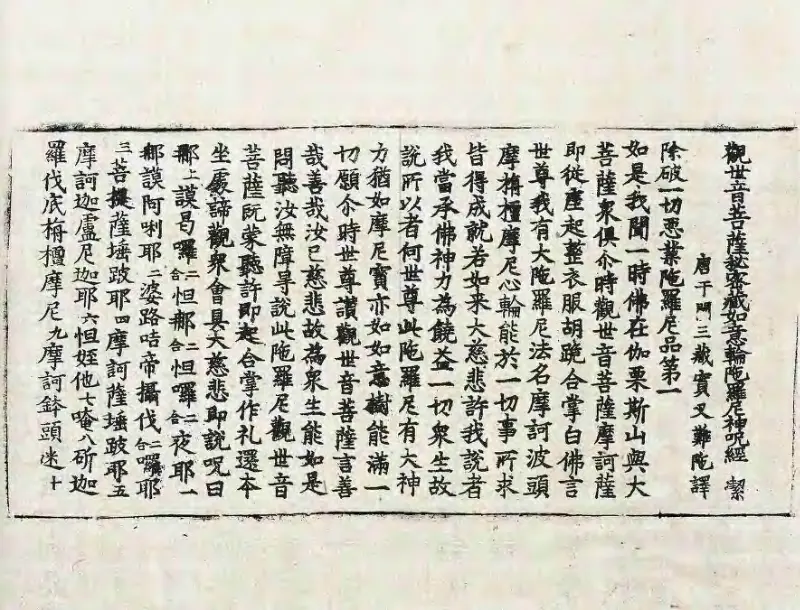 觀世音菩薩秘密藏如意輪陁羅尼神呪經 潔
唐于闐三藏實叉難陁譯
除破一切惡業陁羅尼品第一
如是我聞一時佛在伽栗斯山與大
菩薩衆俱尒時觀世音菩薩摩訶薩
即從座起整衣服胡跪合掌白佛言
世尊我有大陁羅尼法名摩訶波頭
摩栴檀摩尼心輪能於一切事所求
皆得成就若如来大慈悲許我說者
我當承佛神力為饒益一切衆生故
說所以者何世尊此陁羅尼有大神
力猶如摩尼寳亦如如意樹能滿一
切願尒時世尊讃觀世音菩薩言善
哉善哉汝已慈悲故為衆生能如是
問聽汝無障㝵說此陁羅尼觀世音
菩薩既蒙聽許即起合掌作礼還本
坐處諦觀衆會具大慈悲即說呪曰
那上謨曷囉二合怛那二合怛囉二合夜耶一
那謨阿唎耶二婆路咭帝攝伐二合囉耶
三菩提薩埵跛耶四摩訶薩埵跛耶五
摩訶迦盧尼迦耶六怛姪他七唵八斫迦
羅伐底栴檀摩尼九摩訶鉢頭迷十